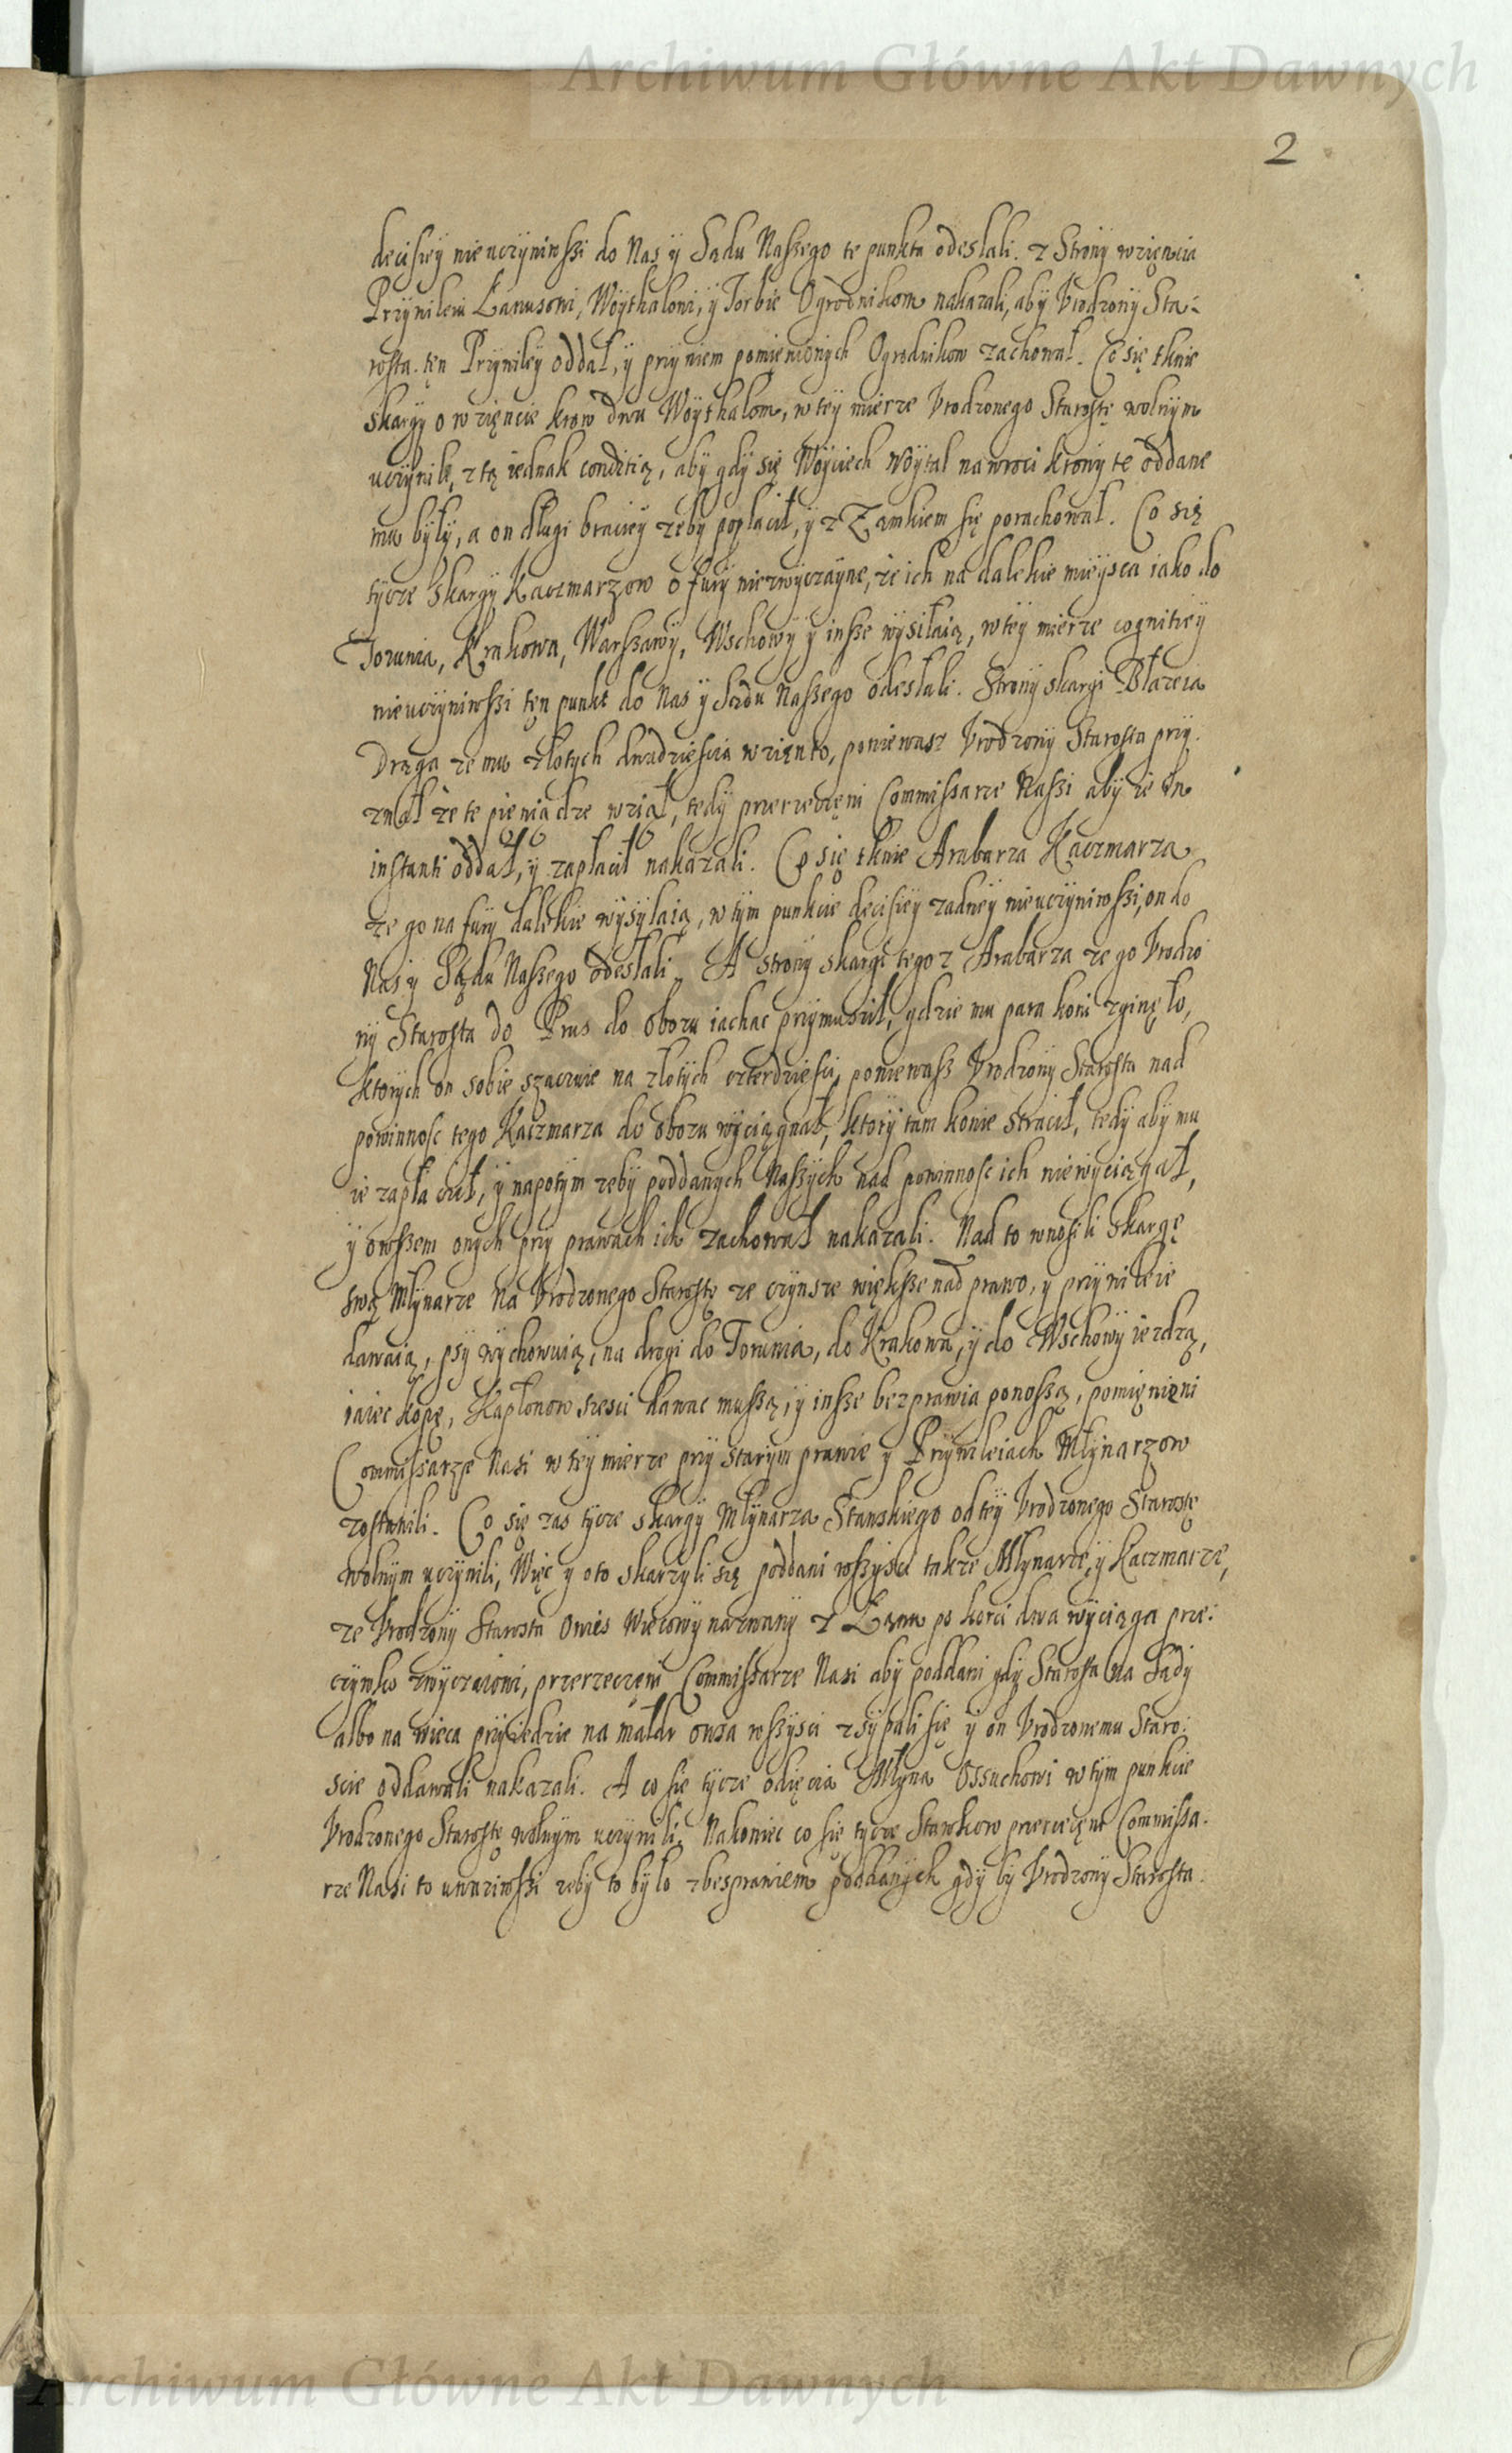 Archiwum Główne Akt Dawnych
2
decisiey nie uczyniwszi do Nas y Sądu Naszego te punkta odeslali. z Strony wzięncia
Przywileiu Łanusowi, Woythalowi, y Torbie Ogrodnikom nakazali, aby Vrodzony Sta-
rosta ten Przywiley oddał, y przy niem pomięnionych Ogrodnikow zachował. Co się tknie
skargy o wzięncie krow dwu Woythalom, w tey mierze Vrodzonego Starostę wolnym
uczynili, z tą iednak conditią, aby gdy się Woyciech Woytal nawroci krowy te oddane
mu były, a on długi braciey zeby popłacił, y z Zamkiem się porachował. Co się
tycze skargy Kaczmarzow o fury niezwyczayne, ze ich na dalekie mieysca iako do
Torunia, Krakowa, Warszawy, Wschowy y insze wysiłaią, w tey mierze cognitiey
nie uczyniwszi ten punkt do Nas y Sądu Naszego odesłali. Strony skargi Błazeia
Drąga ze mu złotych dwadziescia wzięnto, poniewasz Vrodzony Starosta przy-
znał ze te pieniądze wziął, tedy przerzeczęni Commissarze Naszi aby ie in
instanti oddał, y zapłacił nakazali. Co się tknie Arabarza Kaczmarza
ze go na fury dalekie wysyłaią, w tym punkcie decisiey zadney nie uczyniwszi, on do
Nas y Sądu Naszego odesłali. A strony skargi tegoz Arabarza ze go Vrodzo
ny Starosta do Prus do obozu iachac przymusił, gdzie mu para koni zginęło,
ktorych on sobie szacuie na złotych czterdziesci, poniewasz Vrodzony Starosta nad
powinnosc tego Kaczmarza do obozu wyciągnął, ktory tam konie stracił, tedy aby mu
ie zapłacił, y napotym zeby poddanych Naszych nad powinnosc ich nie wyciągał,
y owszem onych przy prawach ich zachował nakazali. Nad to wnosili skargę
swą Młynarze na Vrodzonego Starostę ze czynsze większe nad prawo, y przywileie
dawaią, psy wychowuią, na drogi do Torunia, do Krakowa, y do Wschowy iezdzą,
iaiec kopę, Kapłonow szesci dawac muszą, y insze bezprawia ponoszą, pomięnięni
Commissarze Nasi w tey mierze przy starym prawie y Przywileiach Młynarzow
zostawili. Co się zas tycze skargy Młynarza Stawskiego od tey Vrodzonego Starostę
wolnym uczynili, Więc y oto skarzyli się poddani wszyscy takze Młynarze, y Kaczmarze,
ze Vrodzony Starosta owies Wiecowy nazwany z Łanu po korci dwa wyciąga prze-
czywko zwyczaiowi, przerzeczęni Commissarze Nasi aby poddani gdy Starosta na Sądy
albo na wieca przyiedzie na małdr owsa wszysci zsypali się y on Vrodzonemu Staro-
scie oddawali nakazali. A co się tycze odięcia Młyna Ossuchowi w tym punkcie
Vrodzonego Starostę wolnym uczynili, Nakoniec co się tycze Stawkow przerzeczęni Commissa-
rze Nasi to uwaziwszi zeby to było z besprawiem poddanych gdy by Vrodzony Starosta
Archiwum Główne Akt Dawnych